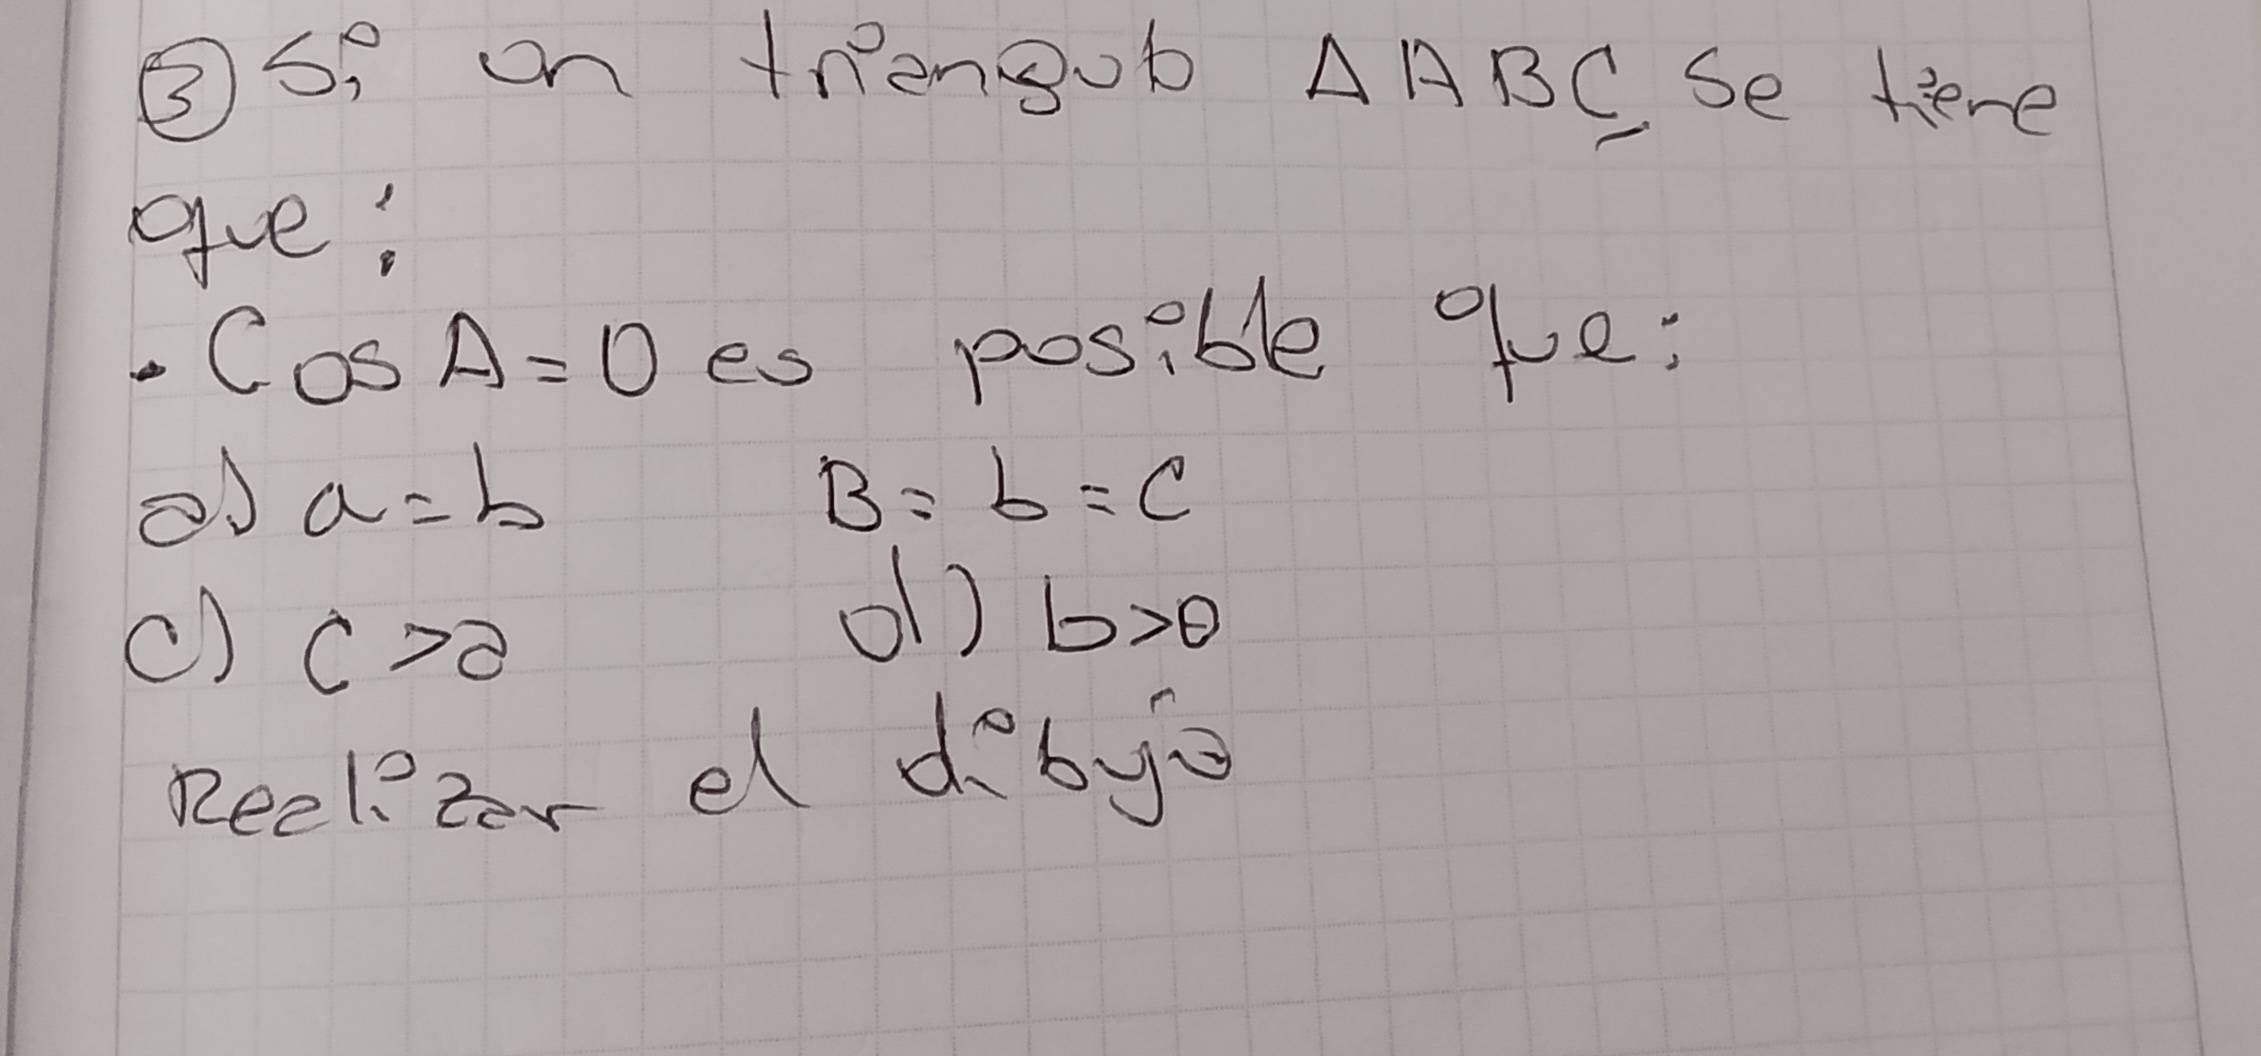 ③ Si un triangulo Δ ABC, se tiene
que:
. Cos A = 0 es posible que:
a) a = b B = b = C
c) C > a d) b > a
Realizar el dibujo